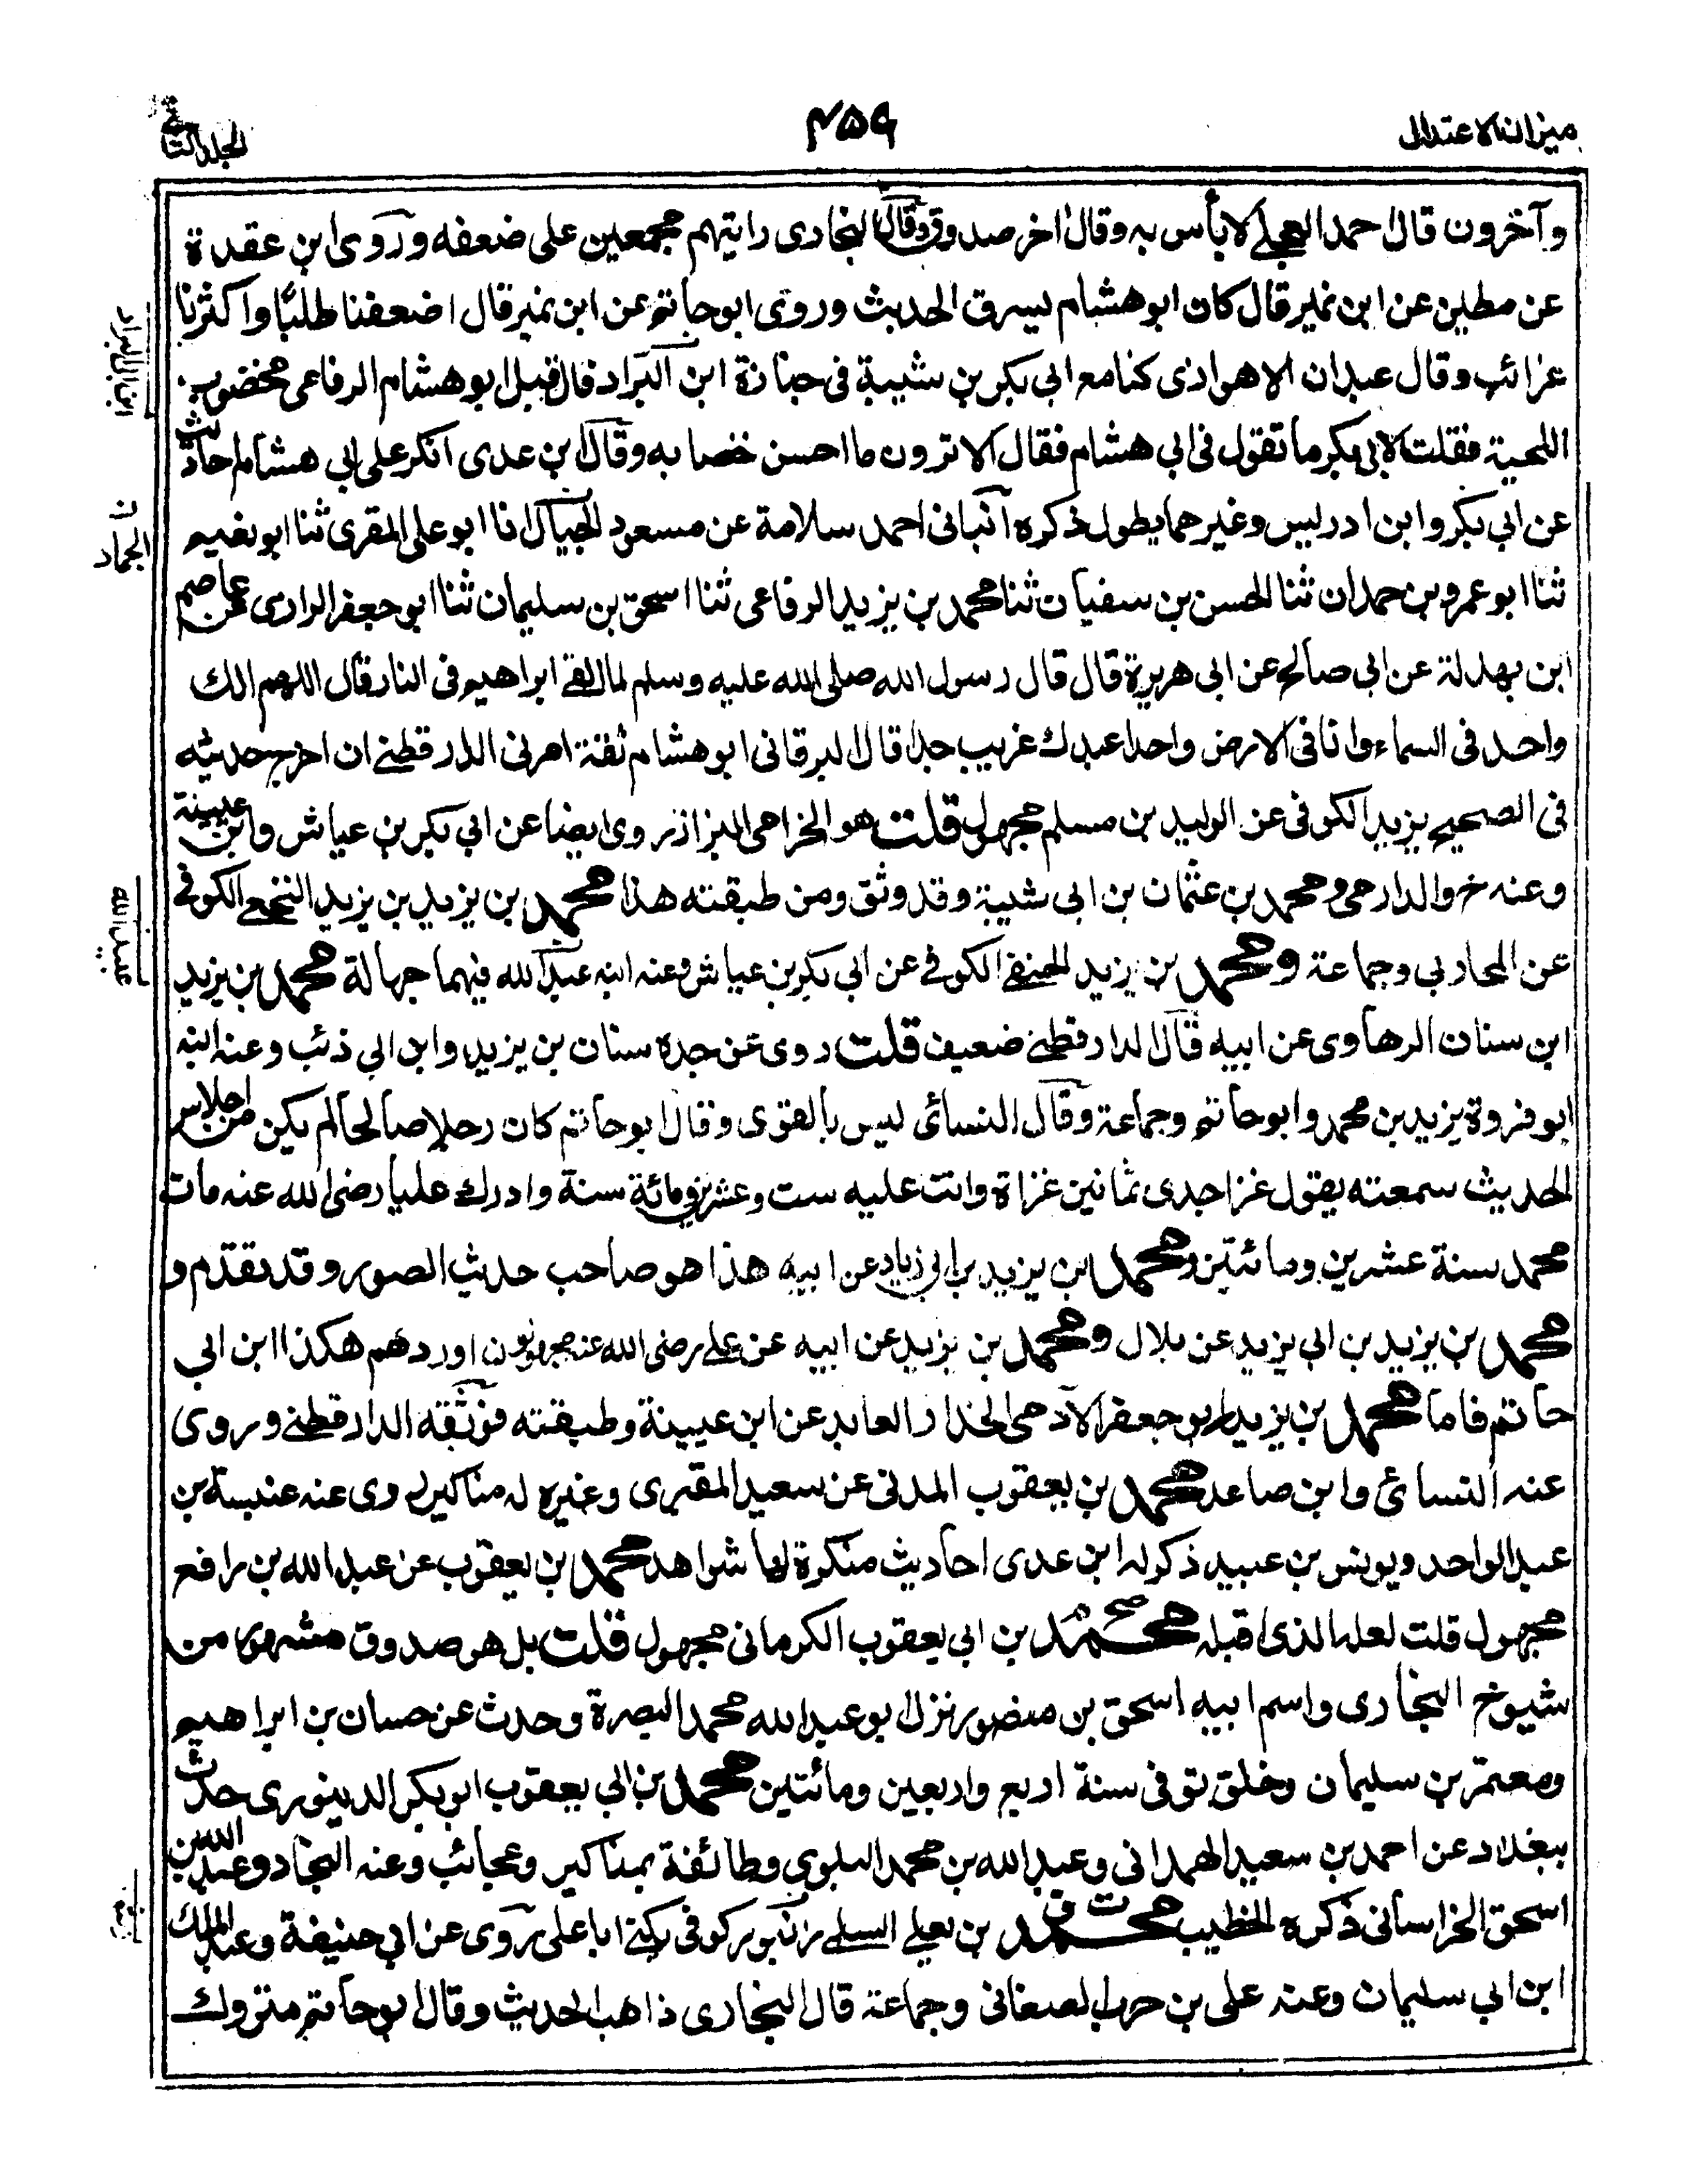 ميزان الاعتدال
۴۵۹
الجلد الثاني
وآخرون قال احمد العجلي لا بأس به وقال اخر صدوق وقال البخارى رايتهم مجمعين على ضعفه وروى ابن عقدة
عن مطين عن ابن نمير قال كان ابو هشام يسرق الحديث وروى ابو حاتم عن ابن نمير قال اضعفنا طلبا واكثرنا
غرائب وقال عبدان الاهوازى كنا مع ابى بكر بن شيبة فى جنازة ابن البراد فاقبل ابو هشام الرفاعى مخضوب
اللحية فقلت لابى بكر ما تقول فى ابى هشام فقال الا ترون ما احسن خضابه وقال ابن عدى انكر على ابى هشام احاديث
عن ابى بكر وابن ادريس وغيرهما يطول ذكره انبانى احمد سلامة عن مسعود الجمال انا ابو على المقرى ثنا ابو نعيم
ثنا ابو عمرو بن حمدان ثنا الحسن بن سفيان ثنا محمد بن يزيد الرفاعى ثنا اسحق بن سليمان ثنا ابو جعفر الرازى عن عاصم
ابن بهدلة عن ابى صالح عن ابى هريرة قال قال رسول الله صلى الله عليه وسلم لما القي ابراهيم فى النار قال اللهم انك
واحد فى السماء وانا فى الارض واحد اعبدك غريب جدا قال البرقانى ابو هشام ثقة امرنى الدارقطني ان اخرج حديثه
فى الصحيح يزيد الكوفى عن الوليد بن مسلم مجهول قلت هو الخزامى البزاز روى ايضا عن ابى بكر بن عياش وابن عيينة
وعنه خ والدارمى ومحمد بن عثمان بن ابى شيبة وقد وثق ومن طبقته هذا محمد بن يزيد بن يزيد النخعي الكوفي
عن المحاربى وجماعة ومحمد بن يزيد الحنفي الكوفي عن ابى بكر بن عياش وعنه ابنه عبد الله فيهما جهالة محمد بن يزيد
ابن سنان الرهاوى عن ابيه قال الدارقطني ضعيف قلت روى عن جده سنان بن يزيد وابن ابى ذئب وعنه ابنه
ابو فروة يزيد بن محمد وابو حاتم وجماعة وقال النسائى ليس بالقوى وقال ابو حاتم كان رجلا صالحا لم يكن من احلاس
الحديث سمعته يقول غزا جدى ثمانين غزاة واتت عليه ست وعشرين ومائة سنة وادرك عليا رضى الله عنه مات
محمد سنة عشرين ومائتين ومحمد ابن يزيد بن ابى زياد عن ابيه هذا هو صاحب حديث الصور وقد تقدم و
محمد بن يزيد بن ابى يزيد عن بلال ومحمد بن يزيد عن ابيه عن علي رضى الله عنه مجهولون اوردهم هكذا ابن ابى
حاتم فاما محمد بن يزيد ابو جعفر الآدمى الخراز العابد عن ابن عيينة وطبقته فوثقه الدارقطني وروى
عنه النسائى وابن صاعد محمد بن يعقوب المدنى عن سعيد المقبرى وغيره له مناكير روى عنه عنبسة بن
عبد الواحد ويونس بن عبيد ذكر له ابن عدى احاديث منكرة لها شواهد محمد بن يعقوب عن عبد الله بن رافع
مجهول قلت لعله الذى قبله محمد بن ابى يعقوب الكرمانى مجهول قلت بل هو صدوق مشهور من
شيوخ البخارى واسم ابيه اسحق بن منصور نزل ابو عبد الله محمد البصرة وحدث عن حسان بن ابراهيم
ومعتمر بن سليمان وخلق توفى سنة اربع واربعين ومائتين محمد بن ابى يعقوب ابو بكر الدينورى حدث
ببغداد عن احمد بن سعيد الهمدانى وعبد الله بن محمد البلوى وطائفة بمناكير وعجائب وعنه النجاد وعبد الله بن
اسحق الخراسانى ذكره الخطيب محمد بن يعلي السلمي زنبور كوفى يكنى ابا على روى عن ابى حنيفة وعبد الملك
ابن ابى سليمان وعنه على بن حرب الصغانى وجماعة قال البخارى ذاهب الحديث وقال ابو حاتم متروك
ابن البراد
الجماد
عبيد الله